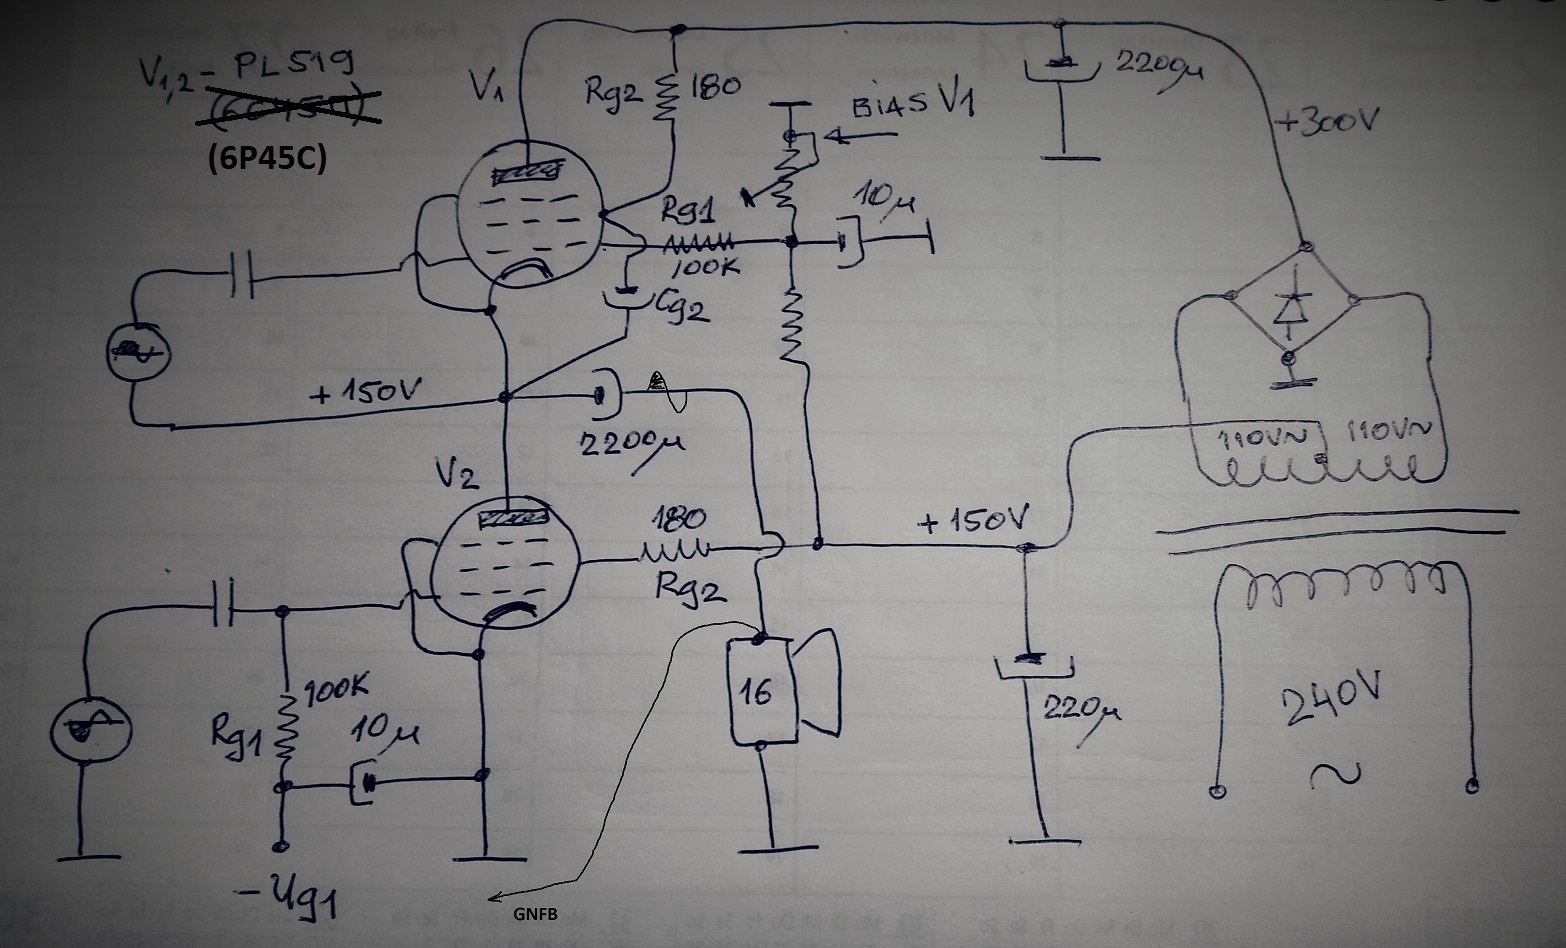 V1,2 - PL519
(6P45C)
V1
Rg2
180
BiAS V1
2200μ
+300V
Rg1
100K
10μ
Cg2
+150V
2200μ
110V~
110V~
V2
180
Rg2
+150V
100K
Rg1
10μ
16
220μ
240V
~
-Ug1
GNFB